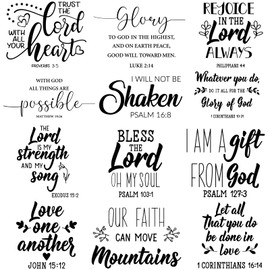 TRUST
THE
Lord
WITH
ALL YOUR
hearts
PROVERBS 3:5
Glory
TO GOD IN THE HIGHEST,
AND ON EARTH PEACE,
GOOD WILL TOWARD MEN.
LUKE 2:14
REJOICE
IN THE
Lord
ALWAYS
PHILIPPIANS 4:4
WITH GOD
ALL THINGS ARE
possible
MATTHEW 19:26
I WILL NOT BE
Shaken
PSALM 16:8
Whatever you do,
DO IT ALL FOR THE
Glory of God
1 CORINTHIANS 10:31
THE
Lord
IS MY
strength
AND MY
song
EXODUS 15:2
BLESS
THE
Lord
OH MY SOUL
PSALM 103:1
I AM A gift
FROM God
PSALM 127:3
Love
one
another
JOHN 15:12
OUR FAITH
CAN MOVE
Mountains
Let all
That you do
be done in
love
1 CORINTHIANS 16:14